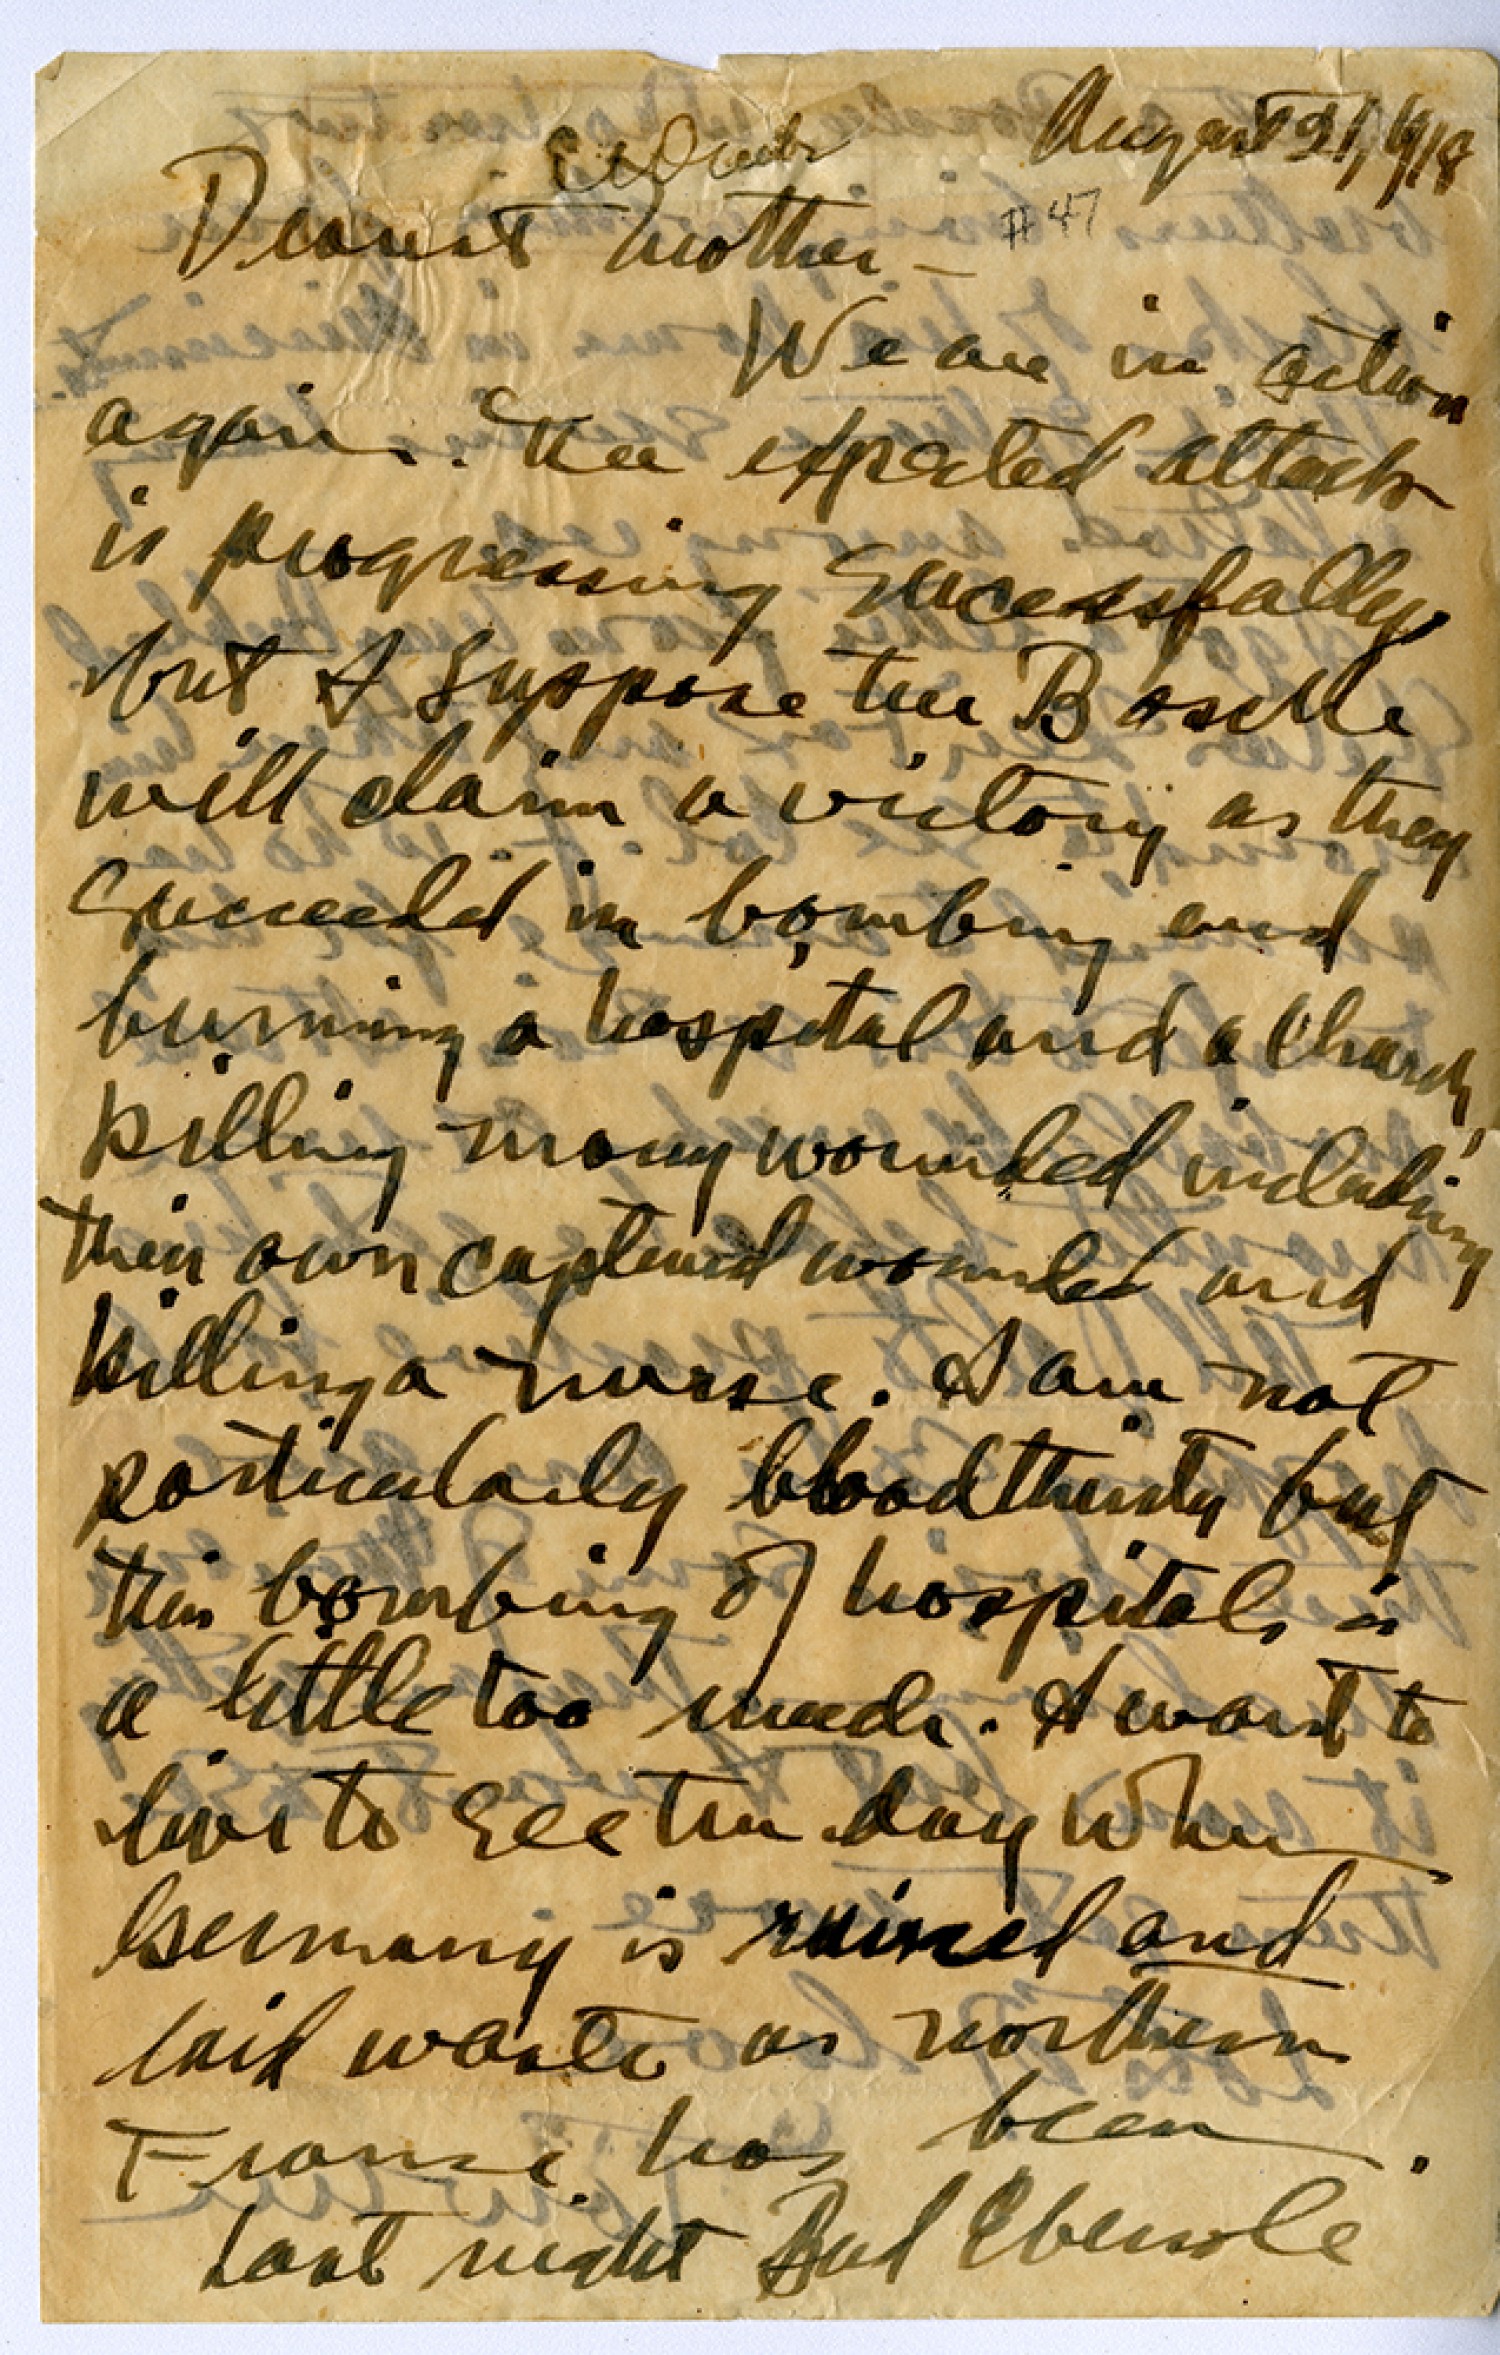 August 21, 1918
Dearest Mother - #47
We are in action
again. The expected attack
is progressing sucessfully
but I suppose the Bosche
will claim a victory as they
succeeded in bombing and
burning a hospital and a church,
killing many wounded including
their own captured wounded and
killing a nurse. I am not
particularly bloodthirsty but
this bombing of hospitals is
a little too much. I want to
live to see the day when
Germany is ruined and
laid waste as northern
France has been.
Last night Bud Ebersole